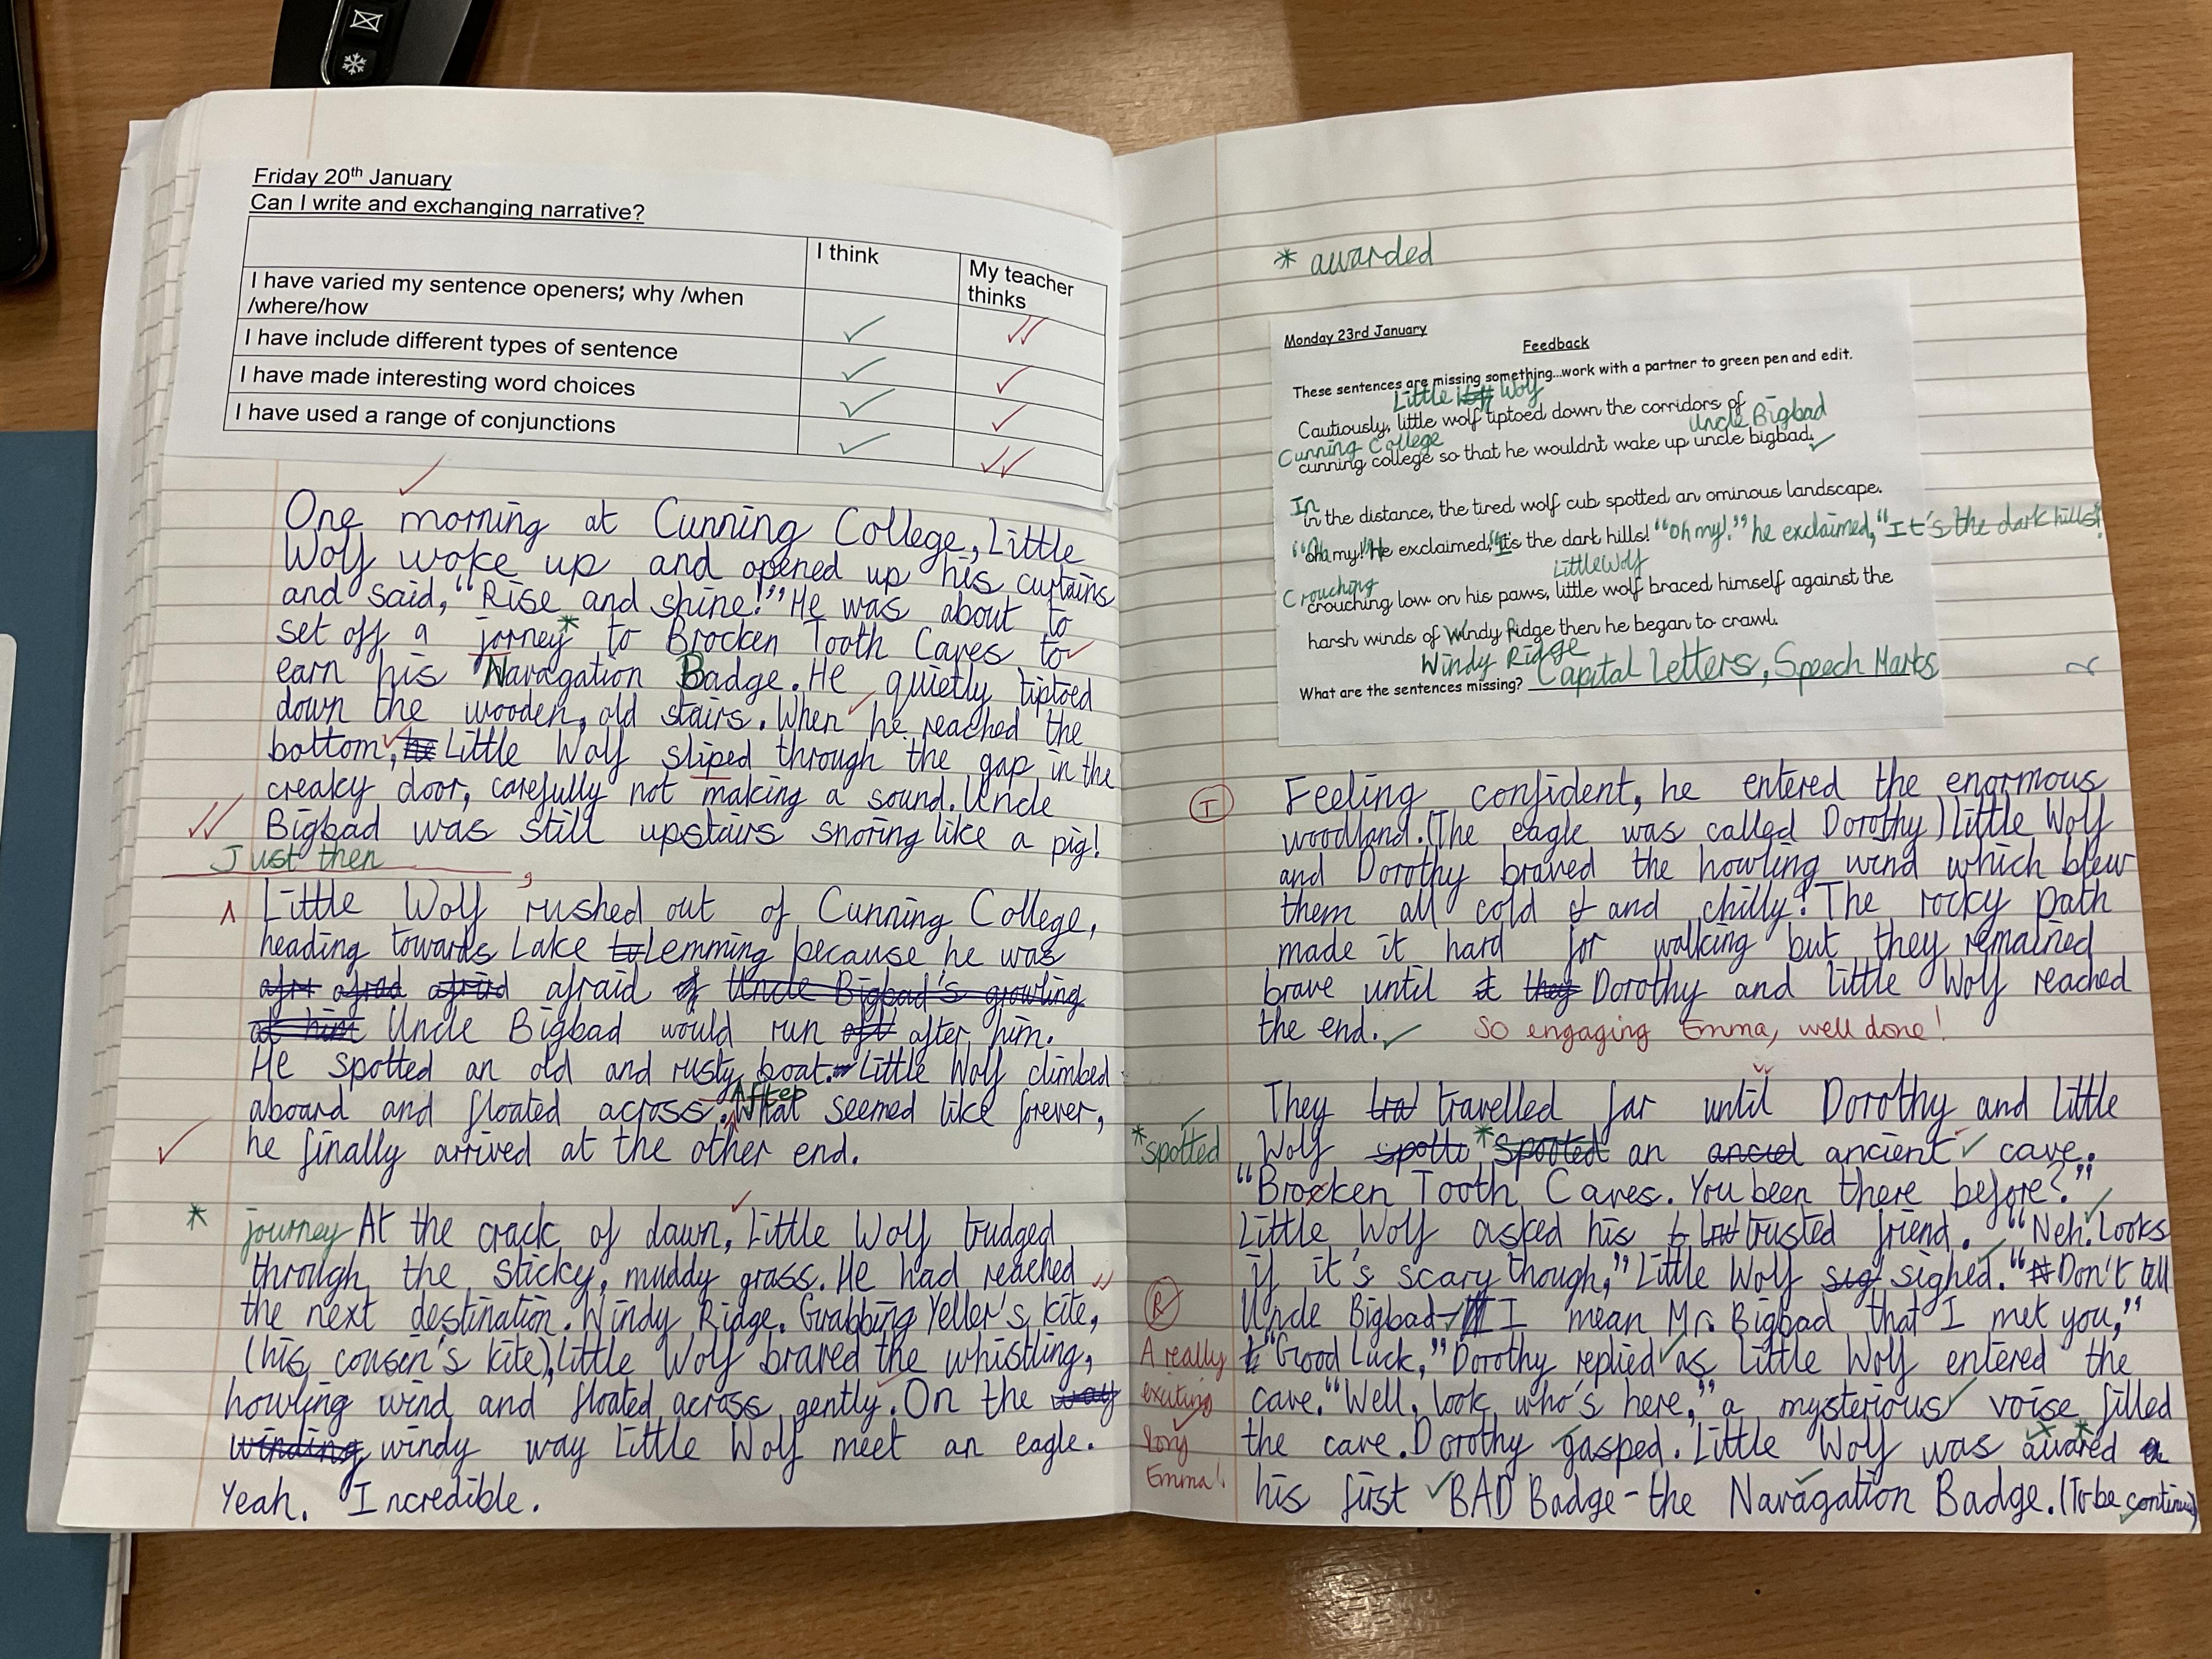 Friday 20th January
Can I write and exchanging narrative?
I think
My teacher
thinks
I have varied my sentence openers; why /when
/where/how
I have include different types of sentence
I have made interesting word choices
I have used a range of conjunctions
One morning at Cunning College, Little
Wolf woke up and opened up his curtains
and said, "Rise and shine!" He was about to
set off a jorney* to Brocken Tooth Caves to
earn his Navagation Badge. He quietly tiptoed
down the wooden, old stairs. When he reached the
bottom, he Little Wolf sliped through the gap in the
creaky door, carefully not making a sound. Uncle
Bigbad was still upstairs snoring like a pig!
Just then,
Little Wolf rushed out of Cunning College,
heading towards Lake to Lemming because he was
afri afrad afraid afraid of Uncle Bigbad's growling
at him Uncle Bigbad would run aft after him.
He spotted an old and rusty boat. Little Wolf climbed
aboard and floated across. After What seemed like forever,
he finally arrived at the other end.
* journey At the crack of dawn, Little Wolf trudged
through the sticky, muddy grass. He had reached
the next destination. Windy Ridge. Grabbing Yeller's kite,
(his cousen's kite), Little Wolf braved the whistling,
howling wind and floated across gently. On the way
winding windy way Little Wolf meet an eagle.
Yeah. Incredible.
* awarded
Monday 23rd January
Feedback
These sentences are missing something...work with a partner to green pen and edit.
Little Wolf
Cautiously, little wolf tiptoed down the corridors of
Cunning College Uncle Bigbad
cunning college so that he wouldn't wake up uncle bigbad.
In
in the distance, the tired wolf cub spotted an ominous landscape.
"Oh my!" He exclaimed, "It's the dark hills! "Oh my!" he exclaimed, "It's the dark hills!
Little Wolf
Crouching
crouching low on his paws, little wolf braced himself against the
harsh winds of Windy Ridge then he began to crawl.
Windy Ridge
What are the sentences missing? Capital Letters, Speech Marks
T
Feeling confident, he entered the enormous
woodland. (The eagle was called Dorothy) Little Wolf
and Dorothy braved the howling wind which blew
them all cold & and chilly! The rocky path
made it hard for walking but they remained
brave until it they Dorothy and little Wolf reached
the end.
So engaging Emma, well done!
They tra travelled far until Dorothy and little
*spotted
Wolf spotto *spooted an anciel ancient cave.
"Brocken Tooth Caves. You been there before?"
Little Wolf asked his trusted friend. "Neh. Looks
if it's scary though," Little Wolf sig sighed. "Don't tell
Uncle Bigbad- I mean Mr. Bigbad that I met you,"
"Good Luck," Dorothy replied as Little Wolf entered the
cave. "Well, look who's here," a mysterious voise filled
the cave. Dorothy gasped. Little Wolf was awared* a
his first BAD Badge - the Navagation Badge. (To be continued)
R
A really
exciting
story
Emma!